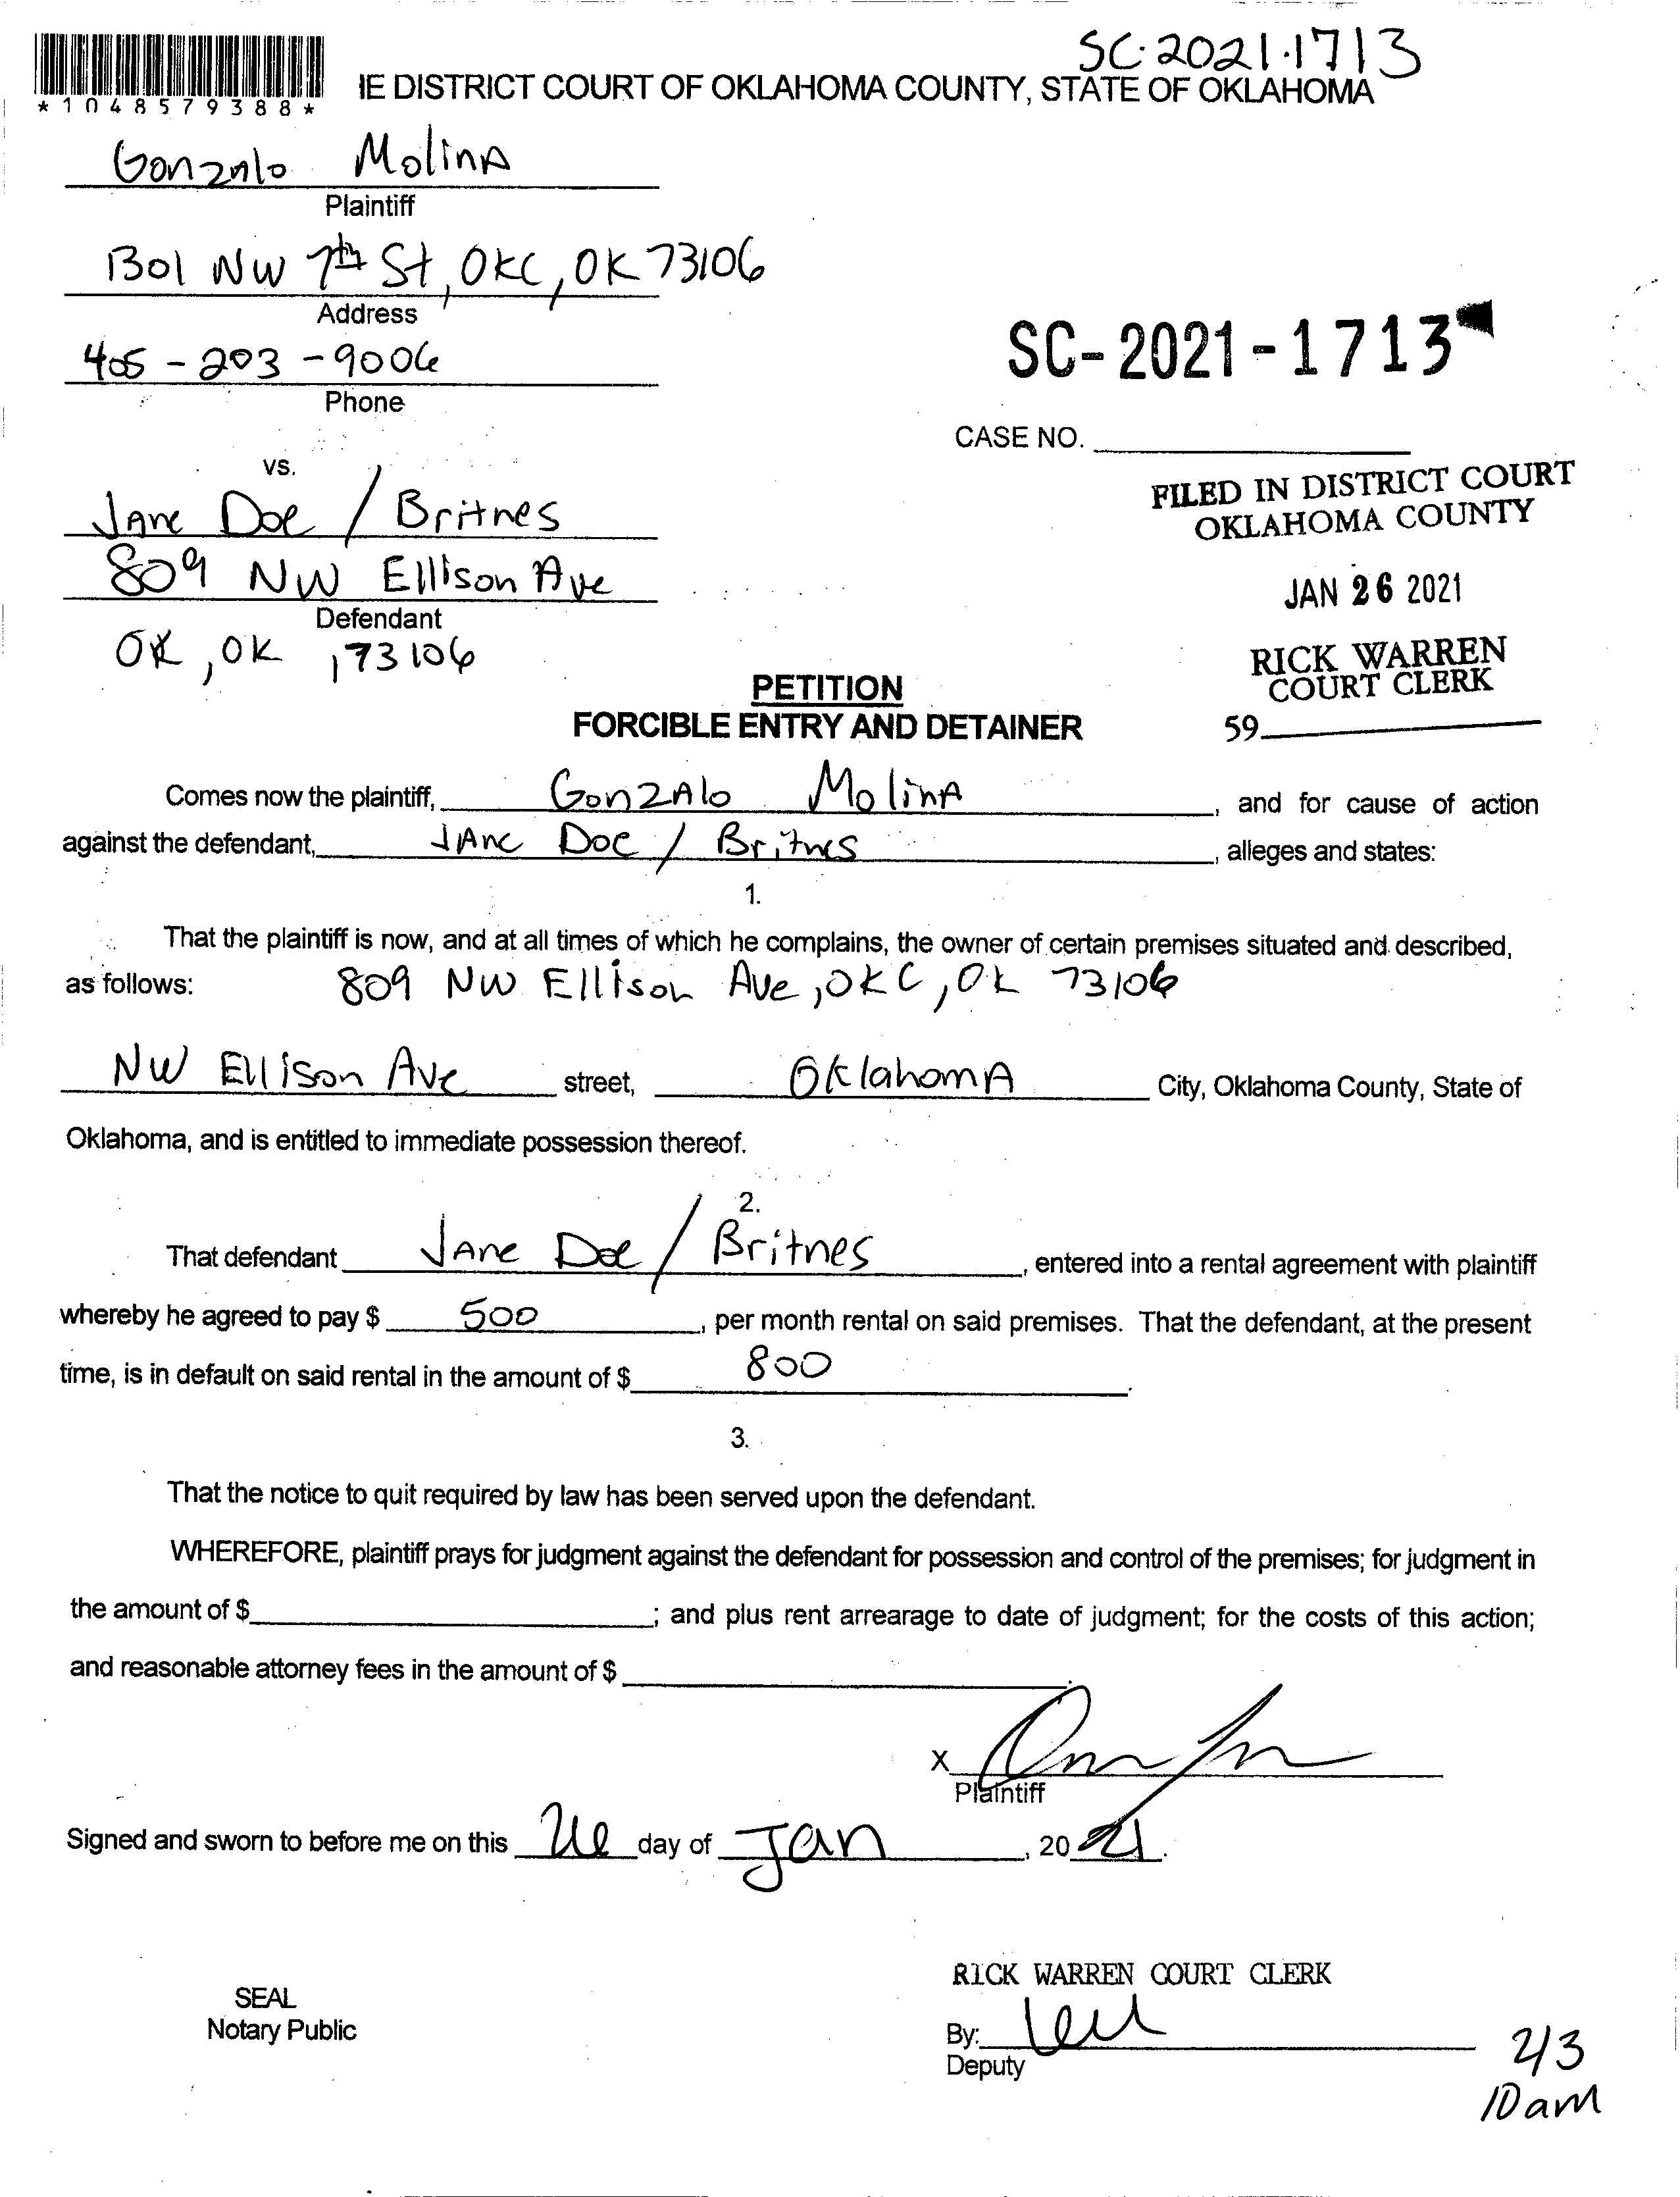 SC-2021-1713
*1048579388*
IE DISTRICT COURT OF OKLAHOMA COUNTY, STATE OF OKLAHOMA
Gonzalo Molina
Plaintiff
1301 NW 7th St, OKC, OK 73106
Address
405-203-9006
Phone
SC-2021-1713
CASE NO.
vs.
Jane Doe / Britnes
809 NW Ellison Ave
Defendant
OK, OK, 73106
FILED IN DISTRICT COURT
OKLAHOMA COUNTY
JAN 26 2021
RICK WARREN
COURT CLERK
59
PETITION
FORCIBLE ENTRY AND DETAINER
Comes now the plaintiff, Gonzalo Molina, and for cause of action
against the defendant, Jane Doe / Britnes, alleges and states:
1.
That the plaintiff is now, and at all times of which he complains, the owner of certain premises situated and described,
as follows: 809 NW Ellison Ave, OKC, OK 73106
NW Ellison Ave street, Oklahoma City, Oklahoma County, State of
Oklahoma, and is entitled to immediate possession thereof.
2.
That defendant Jane Doe / Britnes, entered into a rental agreement with plaintiff
whereby he agreed to pay $ 500, per month rental on said premises. That the defendant, at the present
time, is in default on said rental in the amount of $ 800.
3.
That the notice to quit required by law has been served upon the defendant.
WHEREFORE, plaintiff prays for judgment against the defendant for possession and control of the premises; for judgment in
the amount of $; and plus rent arrearage to date of judgment; for the costs of this action;
and reasonable attorney fees in the amount of $.
X
Plaintiff
Signed and sworn to before me on this 26 day of Jan, 2021.
RICK WARREN COURT CLERK
SEAL
Notary Public
By:
Deputy
2/3
10am